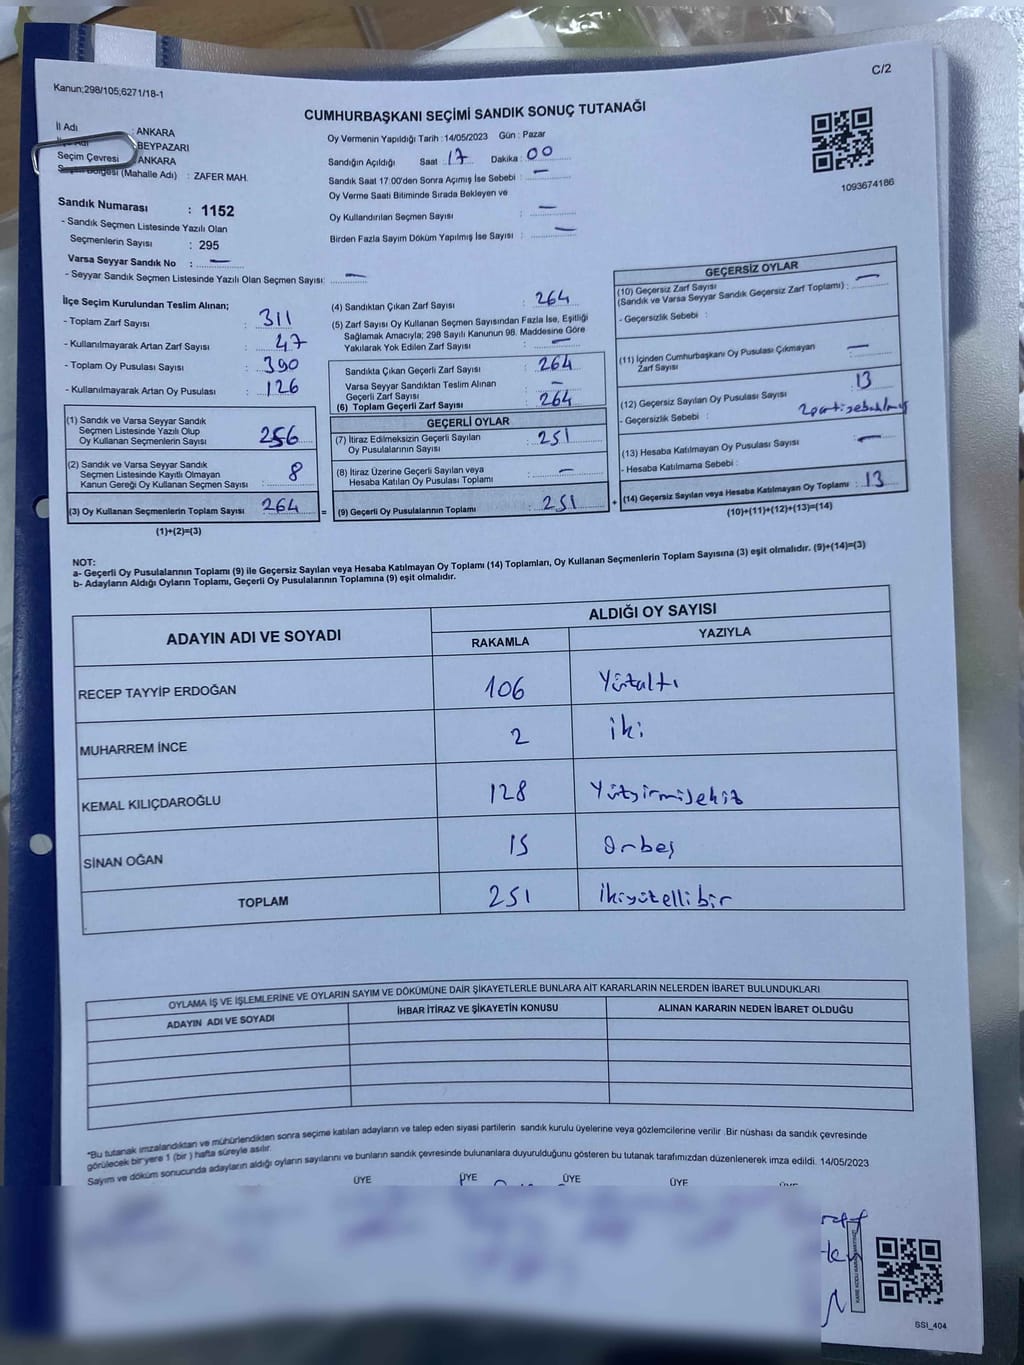 C/2
Kanun;298/105,6271/18-1
CUMHURBAŞKANI SEÇİMİ SANDIK SONUÇ TUTANAĞI
İl Adı : ANKARA
BEYPAZARI
Seçim Çevresi : ANKARA
(Mahalle Adı) : ZAFER MAH.
Sandık Numarası : 1152
- Sandık Seçmen Listesinde Yazılı Olan
Seçmenlerin Sayısı : 295
Varsa Seyyar Sandık No : —
- Seyyar Sandık Seçmen Listesinde Yazılı Olan Seçmen Sayısı: —
Oy Vermenin Yapıldığı Tarih : 14/05/2023 Gün : Pazar
Sandığın Açıldığı Saat : 17 Dakika : 00
Sandık Saat 17:00'den Sonra Açımış İse Sebebi : —
Oy Verme Saati Bitiminde Sırada Bekleyen ve
Oy Kullandırılan Seçmen Sayısı : —
Birden Fazla Sayım Döküm Yapılmış İse Sayısı : —
1093674186
İlçe Seçim Kurulundan Teslim Alınan;
- Toplam Zarf Sayısı : 311
- Kullanılmayarak Artan Zarf Sayısı : 47
- Toplam Oy Pusulası Sayısı : 390
- Kullanılmayarak Artan Oy Pusulası : 126
(1) Sandık ve Varsa Seyyar Sandık
Seçmen Listesinde Yazılı Olup
Oy Kullanan Seçmenlerin Sayısı 256
(2) Sandık ve Varsa Seyyar Sandık
Seçmen Listesinde Kayıtlı Olmayan
Kanun Gereği Oy Kullanan Seçmen Sayısı : 8
(3) Oy Kullanan Seçmenlerin Toplam Sayısı 264 =
(1)+(2)=(3)
(4) Sandıktan Çıkan Zarf Sayısı : 264
(5) Zarf Sayısı Oy Kullanan Seçmen Sayısından Fazla İse, Eşitliği
Sağlamak Amacıyla; 298 Sayılı Kanunun 98. Maddesine Göre
Yakılarak Yok Edilen Zarf Sayısı : —
Sandıkta Çıkan Geçerli Zarf Sayısı : 264
Varsa Seyyar Sandıktan Teslim Alınan
Geçerli Zarf Sayısı : —
(6) Toplam Geçerli Zarf Sayısı : 264
GEÇERLİ OYLAR
(7) İtiraz Edilmeksizin Geçerli Sayılan
Oy Pusulalarının Sayısı : 251
(8) İtiraz Üzerine Geçerli Sayılan veya
Hesaba Katılan Oy Pusulası Toplamı : —
(9) Geçerli Oy Pusulalarının Toplamı : 251 +
GEÇERSİZ OYLAR
(10) Geçersiz Zarf Sayısı
(Sandık ve Varsa Seyyar Sandık Geçersiz Zarf Toplamı) : —
- Geçersizlik Sebebi :
(11) İçinden Cumhurbaşkanı Oy Pusulası Çıkmayan
Zarf Sayısı : —
(12) Geçersiz Sayılan Oy Pusulası Sayısı : 13
- Geçersizlik Sebebi :
(13) Hesaba Katılmayan Oy Pusulası Sayısı : —
- Hesaba Katılmama Sebebi :
(14) Geçersiz Sayılan veya Hesaba Katılmayan Oy Toplamı : 13
(10)+(11)+(12)+(13)=(14)
NOT:
a- Geçerli Oy Pusulalarının Toplamı (9) ile Geçersiz Sayılan veya Hesaba Katılmayan Oy Toplamı (14) Toplamları, Oy Kullanan Seçmenlerin Toplam Sayısına (3) eşit olmalıdır. (9)+(14)=(3)
b- Adayların Aldığı Oyların Toplamı, Geçerli Oy Pusulalarının Toplamına (9) eşit olmalıdır.
ADAYIN ADI VE SOYADI ALDIĞI OY SAYISI
RAKAMLA YAZIYLA
RECEP TAYYİP ERDOĞAN 106 Yüzaltı
MUHARREM İNCE 2 iki
KEMAL KILIÇDAROĞLU 128 Yüzyirmisekiz
SİNAN OĞAN 15 Onbeş
TOPLAM 251 İkiyüzellibir
OYLAMA İŞ VE İŞLEMLERİNE VE OYLARIN SAYIM VE DÖKÜMÜNE DAİR ŞİKAYETLERLE BUNLARA AİT KARARLARIN NELERDEN İBARET BULUNDUKLARI
ADAYIN ADI VE SOYADI İHBAR İTİRAZ VE ŞİKAYETİN KONUSU ALINAN KARARIN NEDEN İBARET OLDUĞU
*Bu tutanak imzalandıktan ve mühürlendikten sonra seçime katılan adayların ve talep eden siyasi partilerin sandık kurulu üyelerine veya gözlemcilerine verilir .Bir nüshası da sandık çevresinde
görülecek bir yere 1 (bir ) hafta süreyle asılır.
Sayım ve döküm sonucunda adayların aldığı oyların sayılarını ve bunların sandık çevresinde bulunanlara duyurulduğunu gösteren bu tutanak tarafımızdan düzenlenerek imza edildi. 14/05/2023
ÜYE ÜYE ÜYE ÜYE
SSI_404